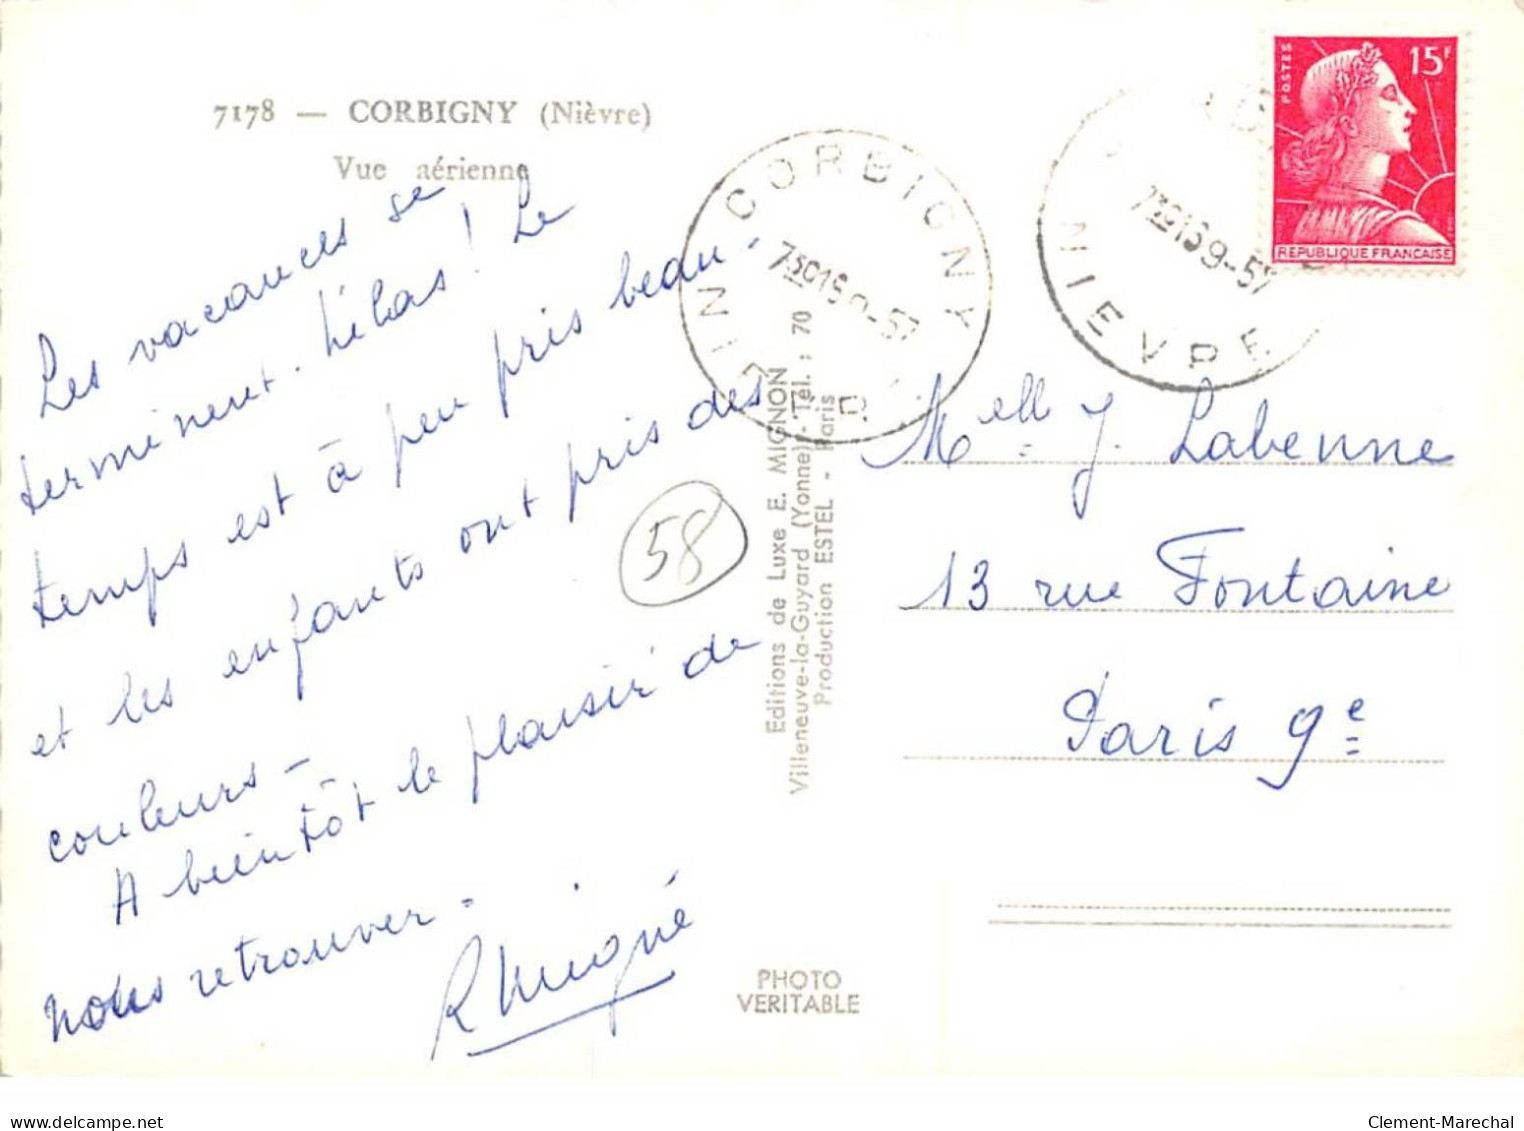 7178 — CORBIGNY (Nièvre)
Vue aérienne
Les vacances se
terminent. hélas ! Le
temps est à peu près beau,
et les enfants ont pris des
couleurs –
A bientôt le plaisir de
nous retrouver.
58
CORBIGNY
NIEVRE
7 30 16 9-57
NIEVRE
7 30 16 9-57
POSTES
15F
REPUBLIQUE FRANÇAISE
Melle J. Labenne
13 rue Fontaine
Paris 9e
Editions de Luxe E. MIGNON
Villeneuve-la-Guyard (Yonne) - Tél. : 70
Production ESTEL - Paris
PHOTO
VERITABLE
delcampe.net
Clement-Marechal